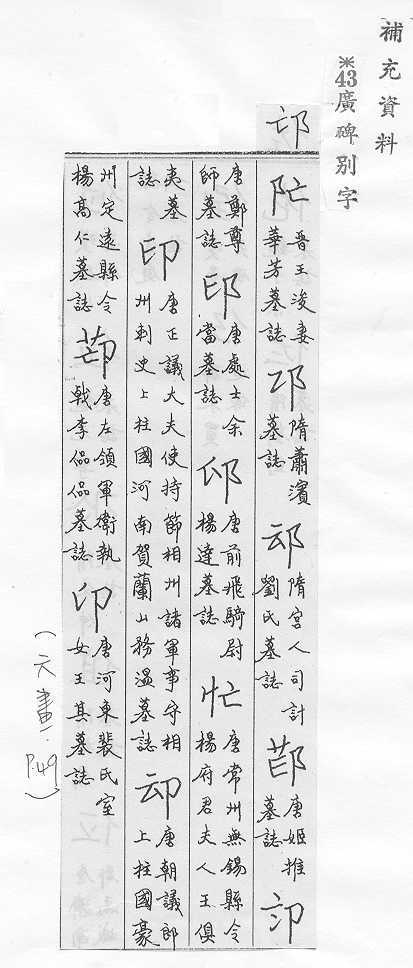 補充資料
※43廣碑別字
邙
𨸏亡 晋王浚妻華芳墓誌 邛 隋蕭濱墓誌 䢵 隋宮人司計劉氏墓誌 茚 唐姬推墓誌 卬
唐鄭尊師墓誌 印 唐處士余當墓誌 邱 唐前飛騎尉楊達墓誌 忙 唐常州無錫縣令楊府君夫人王俱
夷墓誌 印 唐正議大夫使持節相州諸軍事守相州刺史上柱國河南賀蘭山務溫墓誌 卻 唐朝議郎上柱國豪
州定遠縣令楊高仁墓誌 茚 唐左領軍衛執戟李品品墓誌 印 唐河東裴氏室女王其墓誌
(六畫.P.49)